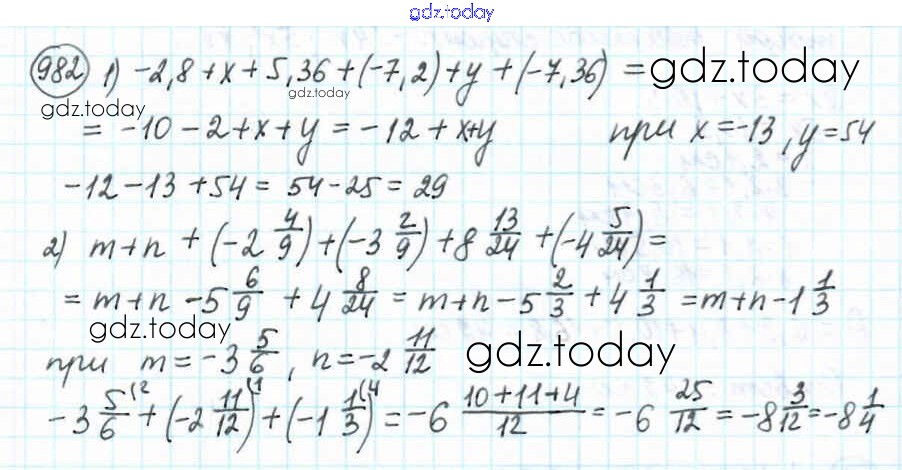 gdz.today
982 1) -2,8 + x + 5,36 + (-7,2) + y + (-7,36) = gdz.today
gdz.today gdz.today
= -10 - 2 + x + y = -12 + x+y при x = -13, y = 54
-12 - 13 + 54 = 54 - 25 = 29
2) m + n + (-2 4/9) + (-3 2/9) + 8 13/24 + (-4 5/24) =
= m + n - 5 6/9 + 4 8/24 = m + n - 5 2/3 + 4 1/3 = m + n - 1 1/3
gdz.today
при m = -3 5/6, n = -2 11/12 gdz.today
-3 5/6 (2 + (-2 11/12 (1) + (-1 1/3 (4) = -6 (10+11+4)/12 = -6 25/12 = -8 3/12 = -8 1/4